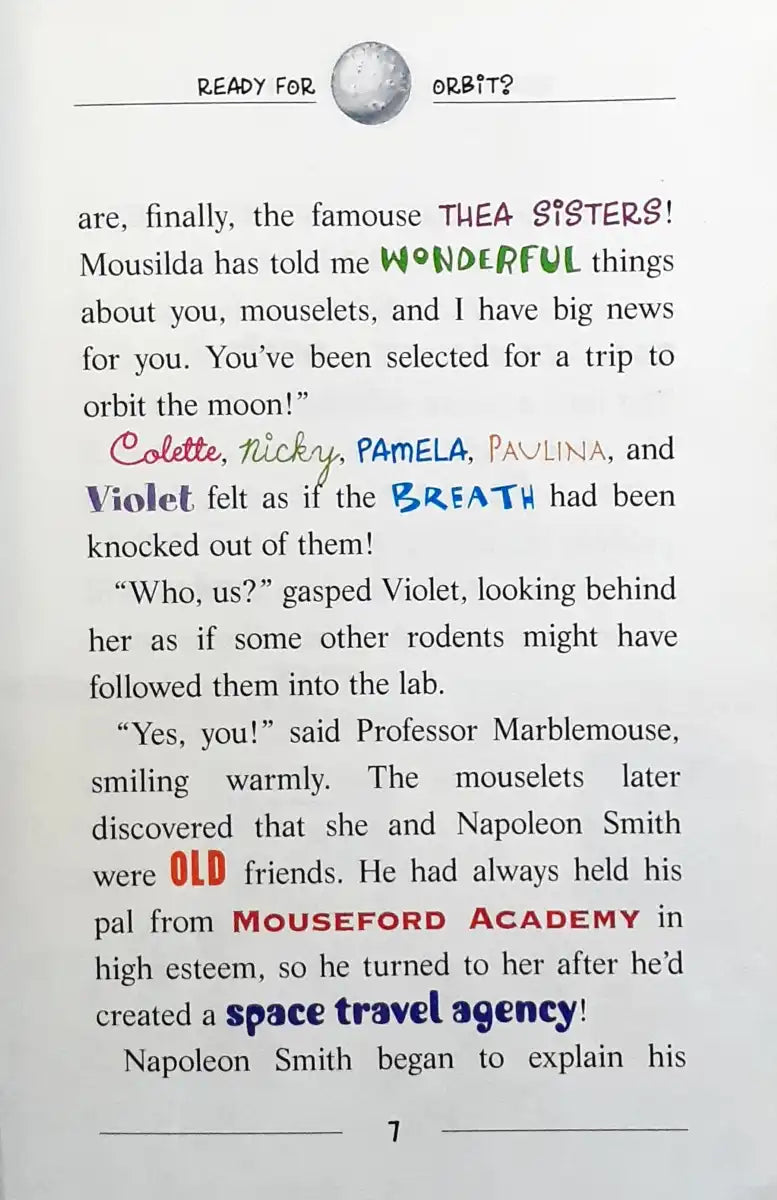 READY FOR ORBIT?
are, finally, the famouse THEA SISTERS!
Mousilda has told me WONDERFUL things
about you, mouselets, and I have big news
for you. You've been selected for a trip to
orbit the moon!”
Colette, Nicky, PAMELA, PAULINA, and
Violet felt as if the BREATH had been
knocked out of them!
“Who, us?” gasped Violet, looking behind
her as if some other rodents might have
followed them into the lab.
“Yes, you!” said Professor Marblemouse,
smiling warmly. The mouselets later
discovered that she and Napoleon Smith
were OLD friends. He had always held his
pal from MOUSEFORD ACADEMY in
high esteem, so he turned to her after he'd
created a space travel agency!
Napoleon Smith began to explain his
7